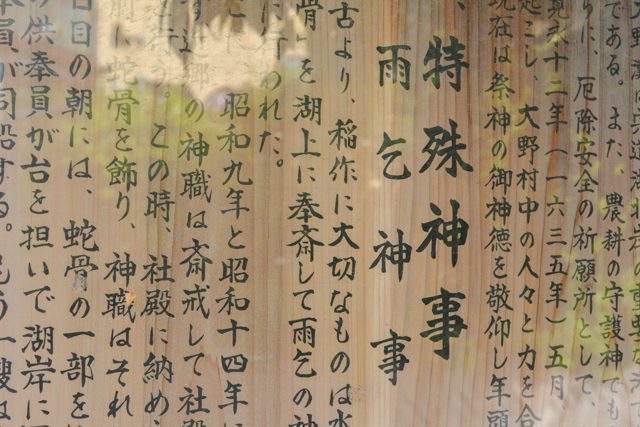 である。また、農耕の守護神でも
りに、厄除安全の祈願所として、
寛永十二年（一六三五年）五月
起こし、大野村中の人々と力を合
現在は祭神の御神徳を敬仰し年頭
特殊神事
雨乞神事
古より、稲作に大切なものは水
骨」を湖上に奉斎して雨乞の神
に行われた。
昭和九年と昭和十四年に
近郷の神職は斎戒して社殿
この時、社殿に納め、
前に蛇骨を飾り、神職はそれ
日目の朝には、蛇骨の一部を
の供奉員が台を担いで湖岸に
奉員が同船する。もう一艘は